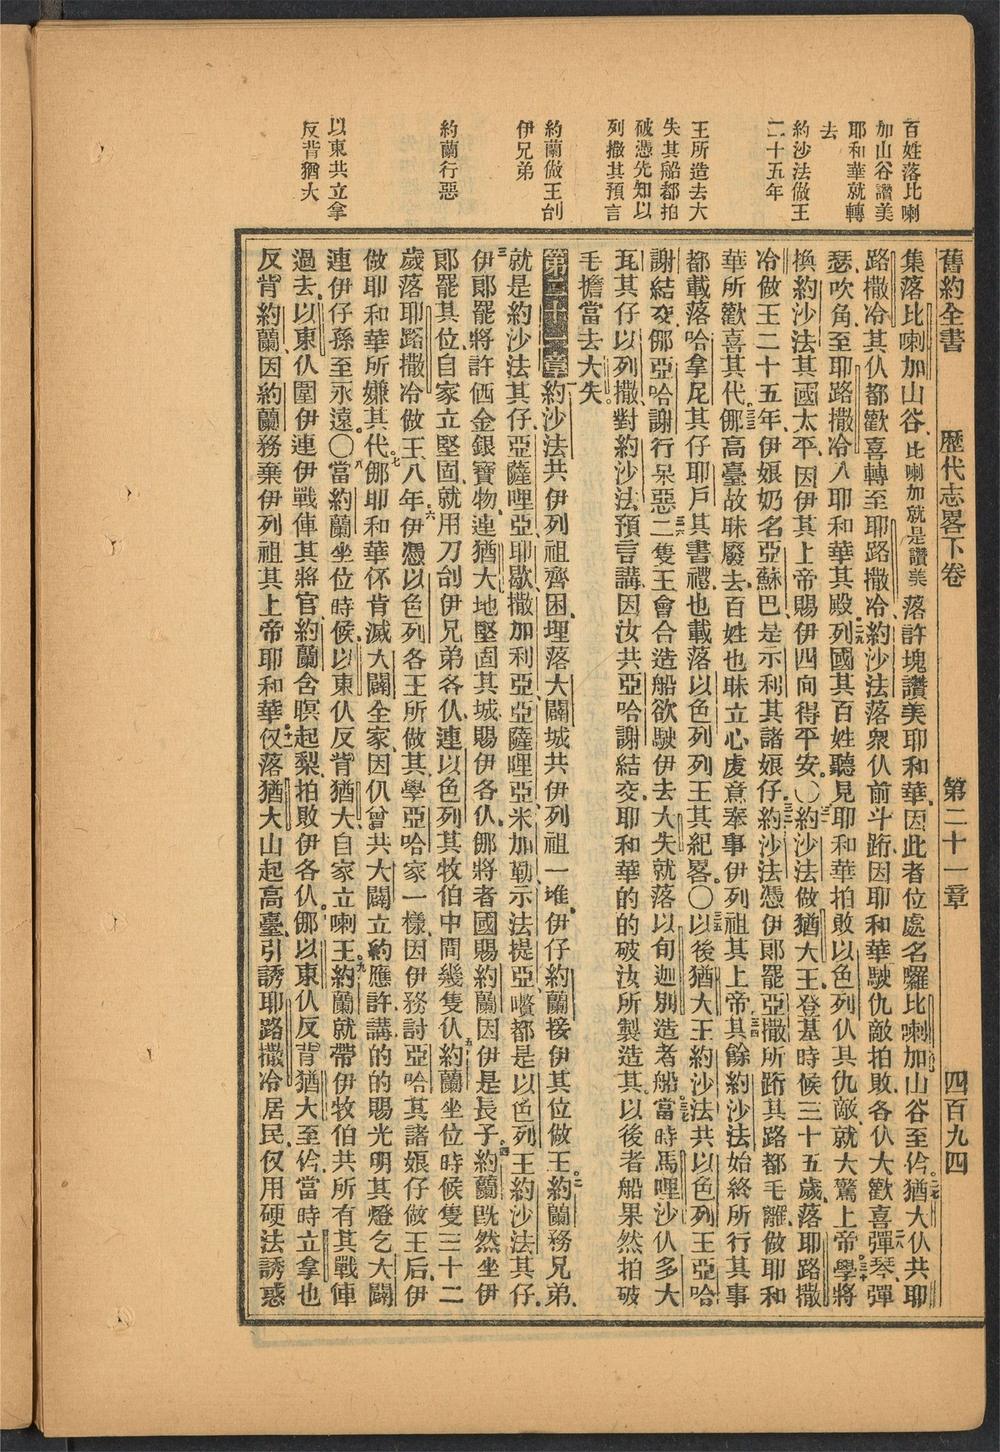 百姓落比喇
加山谷讚美
耶和華就轉
去
約沙法做王
二十五年
王所造去大
失其船都拍
破憑先知以
列撒其預言
約蘭做王刣
伊兄弟
約蘭行惡
以東共立拿
反背猶大
舊約全書 歷代志畧下卷 第二十一章 四百九四
集落比喇加山谷比喇加就是讚美落許塊讚美耶和華因此者位處名囉比喇加山谷至伱二七猶大仈共耶
路撒冷其仈都歡喜轉至耶路撒冷約沙法落衆仈前斗跡因耶和華駛仇敵拍敗各仈大歡喜二八彈琴彈
瑟吹角至耶路撒冷入耶和華其殿二九列國其百姓聽見耶和華拍敗以色列仈其仇敵就大驚上帝三十學將
換約沙法其國太平因伊其上帝賜伊四向得平安〇三一約沙法做猶大王登基時候三十五歲落耶路撒
冷做王二十五年伊娘奶名亞蘇巴是示利其諸娘仔三二約沙法憑伊郎罷亞撒所跡其路都毛離做耶和
華所歡喜其代三三挪高臺故昧廢去百姓也昧立心虔意奉事伊列祖其上帝三四其餘約沙法始終所行其事
都載落哈拿尼其仔耶戶其書禮也載落以色列列王其紀畧〇三五以後猶大王約沙法共以色列王亞哈
謝結交挪亞哈謝行呆惡三六二隻王會合造船欲駛伊去大失就落以旬迦別造者船三七當時馬哩沙仈多大
瓦其仔以列撒對約沙法預言講因汝共亞哈謝結交耶和華的的破汝所製造其以後者船果然拍破
毛擔當去大失
第二十一章一約沙法共伊列祖齊困埋落大闢城共伊列祖一堆伊仔約蘭接伊其位做王二約蘭務兄弟
就是約沙法其仔亞薩哩亞耶歇撒加利亞亞薩哩亞米加勒示法提亞嚽都是以色列王約沙法其仔
三伊郎罷將許価金銀寶物連猶大地堅固其城賜伊各仈挪將者國賜約蘭因伊是長子四約蘭旣然坐伊
郎罷其位自家立堅固就用刀刣伊兄弟各仈連以色列其牧伯中間幾隻仈五約蘭坐位時候隻三十二
歲落耶路撒冷做王八年六伊憑以色列各王所做其學亞哈家一樣因伊務討亞哈其諸娘仔做王后伊
做耶和華所嫌其代七挪耶和華伓肯滅大闢全家因仈曾共大闢立約應許講的的賜光明其燈乞大闢
連伊仔孫至永遠〇八當約蘭坐位時候以東仈反背猶大自家立喇王九約蘭就帶伊牧伯共所有其戰俥
過去以東仈圍伊連伊戰俥其將官約蘭含暝起梨拍敗伊各仈十挪以東仈反背猶大至伱當時立拿也
反背約蘭因約蘭務棄伊列祖其上帝耶和華十一仅落猶大山起高臺引誘耶路撒冷居民仅用硬法誘惑